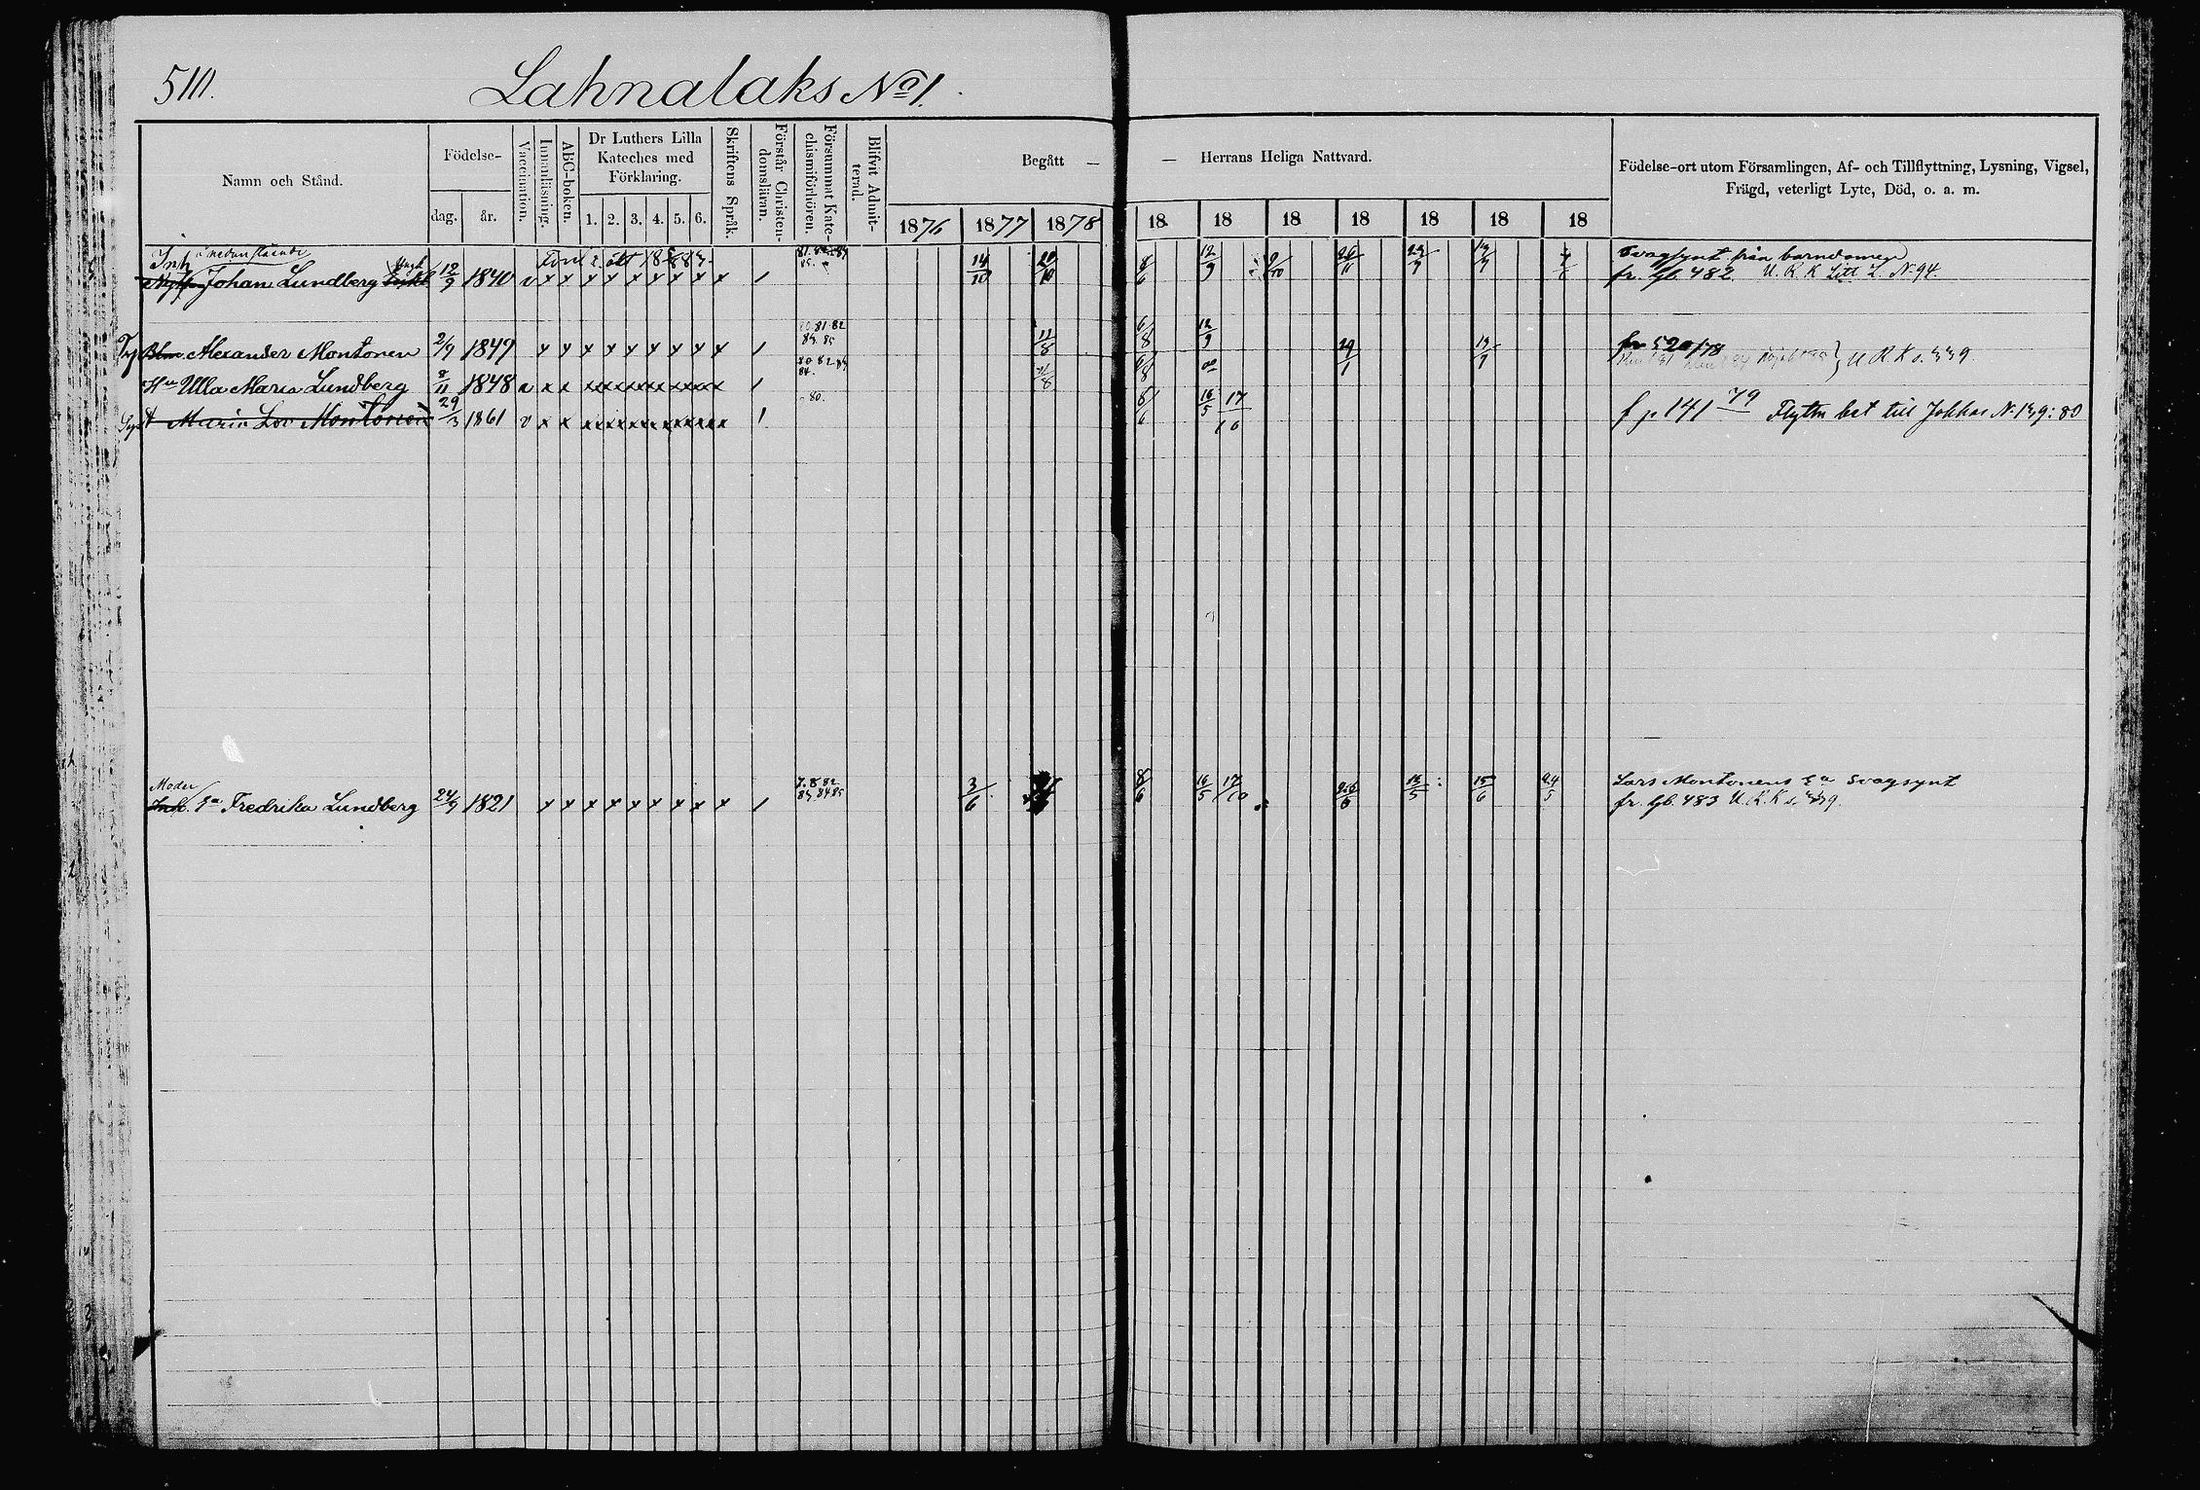 510.
Lahnalaks No 1.
Namn och Stånd.
Födelse-
dag.
år.
Vaccination.
Innanläsning.
ABC-boken.
Dr Luthers Lilla
Kateches med
Förklaring.
1. 2. 3. 4. 5. 6.
Skriftens Språk.
Förstår Christen-
domsläran.
Försummat Kate-
chismiförhören.
Blifvit Admit-
terad.
Begått —
— Herrans Heliga Nattvard.
1876 1877 1878
18 18 18 18 18 18 18
Födelse-ort utom Församlingen, Af- och Tillflyttning, Lysning, Vigsel,
Frägd, veterligt Lyte, Död, o. a. m.
Inh nedanstående
Johan Lundberg 12/9 1840 v x x x x x x x x x / 14/10 8/6 12/9 9/10 26/11
Svagsynt från barndomen
fr. Gb. 482. U. R. K Litt L. N. 94.
Alexander Montonen 2/9 1849 x x x x x x x x x / 81 82 11/8 6/8 12/9
fr 520/78
U R K s. 339
Hu Ulla Maria Lundberg 8/11 1848 x x / 11/8 6/8
Maria Lov. Montonen 29/3 1861 v x x / 80. 6/6 16/5 17/10
f p 141 79 Flyttn bet till Jokkas N. 139: 80
Moder
Inh. Ea Fredrika Lundberg 24/9 1821 x x x x x x x x x / 83 84 85 3/6 8/6 16/5 17/10 13/5 15/6 24/5
Lars Montonens Ea Svagsynt
fr. Gb. 483 U. R. K s. 339.